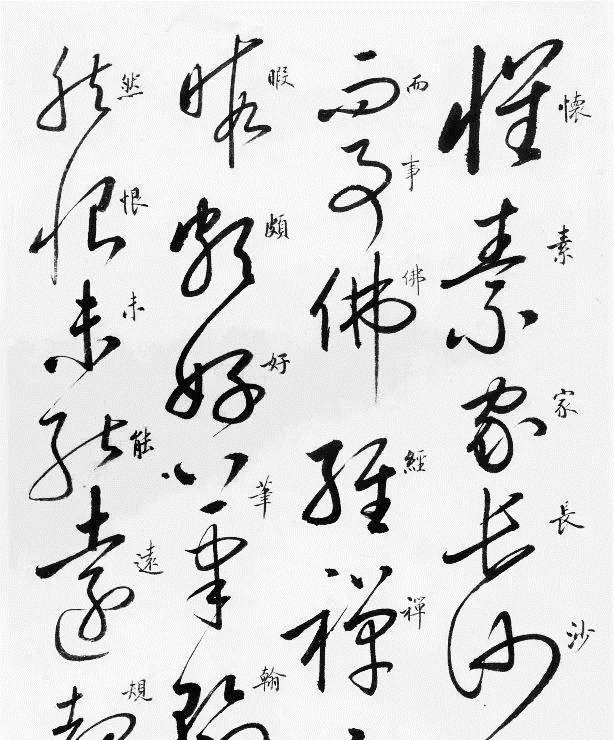 懷素家長沙
而事佛經禪
暇頗好筆翰
然恨未能遠規